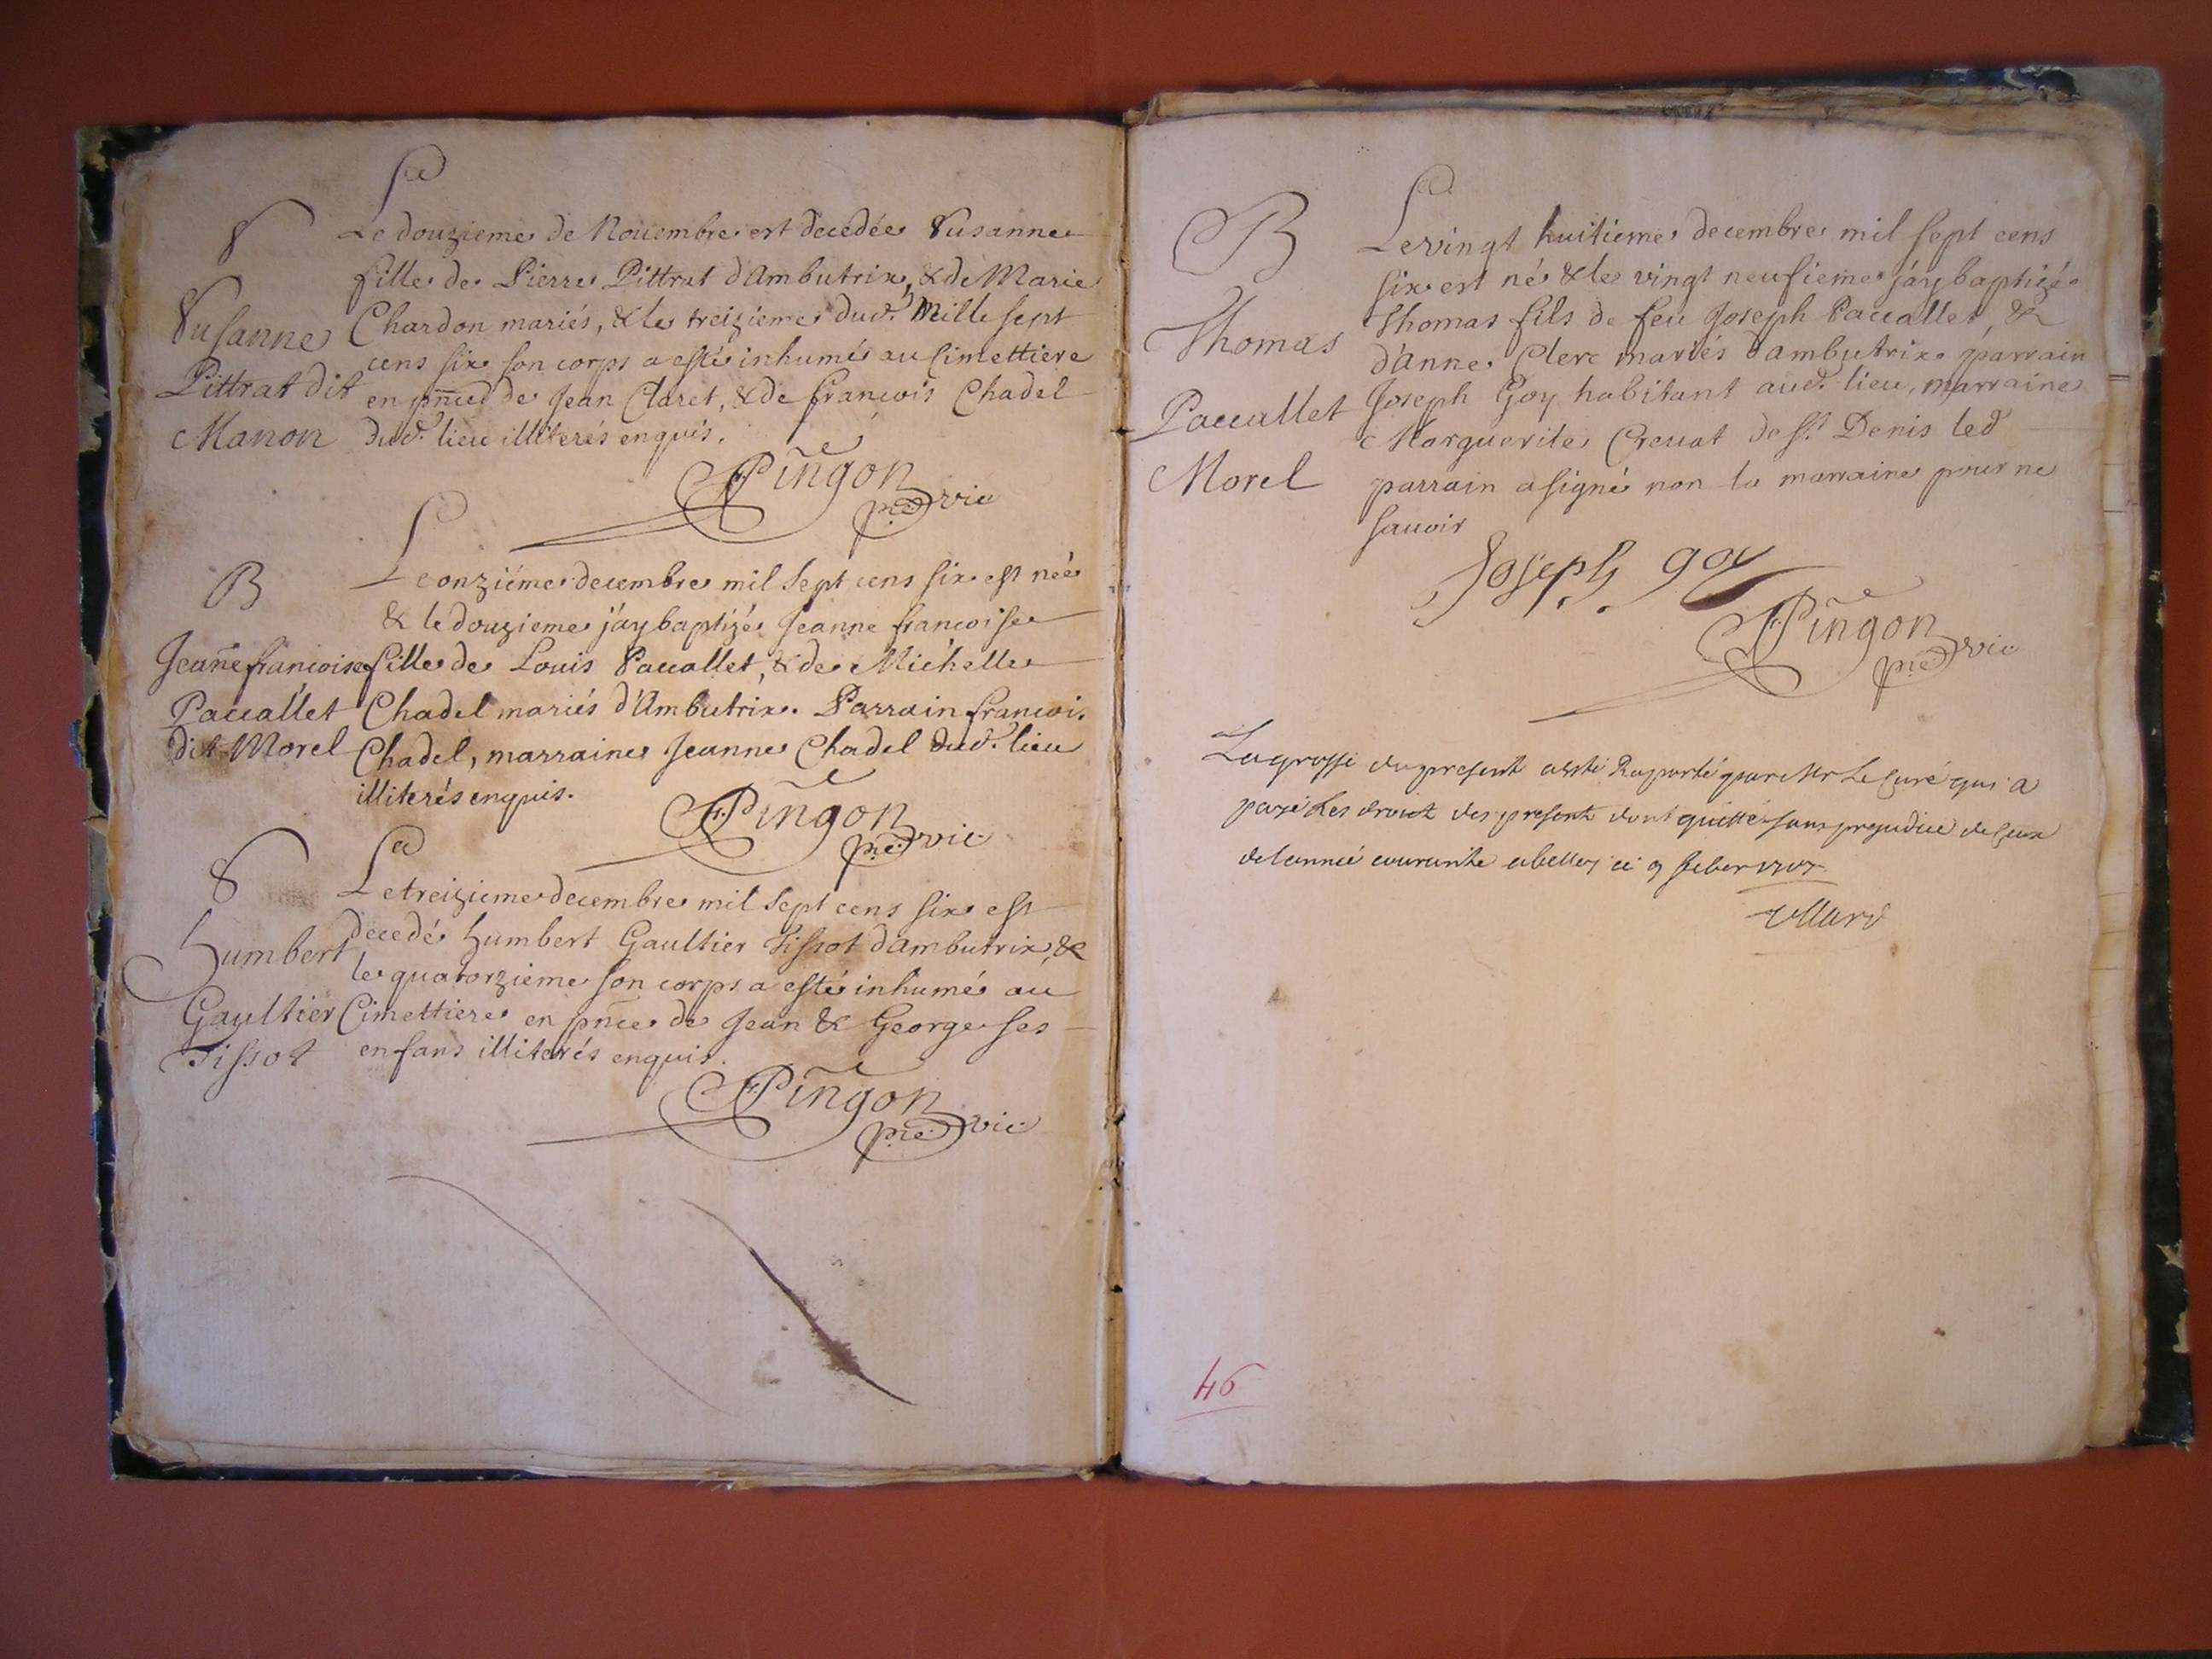 S
Susanne
Pittrat dit
Manon
Le douzieme de Nouembre est decedée Susanne
fille de Pierre Pittrat d'Ambutrix, & de Marie
Chardon mariés, & le treizieme dud. Mille sept
cens six son corps a esté inhumé au Cimettiere
en pñce de Jean Claret, & de françois Chadel
dud. lieu illiterés enquis.
Pingon
pre vic
B
Jeanne françoise
Pacallet
dit Morel
Le onziéme decembre mil sept cens six est née
& le douzieme j'ay baptizé Jeanne françoise
fille de Louis Pacallet, & de Michelle
Chadel mariés d'Ambutrix. Parrain françois
Chadel, marraine Jeanne Chadel dud. lieu
illiterés enquis.
Pingon
pre vic
S
Humbert
Gaultier
Tissot
Le treizieme decembre mil sept cens six est
decedé humbert Gaultier Tissot d'ambutrix, &
le quatorzieme son corps a esté inhumé au
Cimettiere en pñce de Jean & George ses
enfans illiterés enquis.
Pingon
pre vic
B
Thomas
Paccallet
Morel
Le vingt huitieme decembre mil sept cens
six est né & le vingt neufieme j'ay baptizé
Thomas fils de feu Joseph Paccallet, &
d'Anne Clerc mariés d'ambutrix parrain
Joseph Goy habitant aud. lieu, marraine
Marguerite Creuat de St Denis led
parrain a signé non la marraine pour ne
sauoir
Joseph goy
Pingon
pre vic
La grosse du present a esté Raporté par Mr Le Curé qui a
payé Les droict des present dont quitte sans prejudice de Ceux
de lannée courante a belley ce 9 feber 1707
46